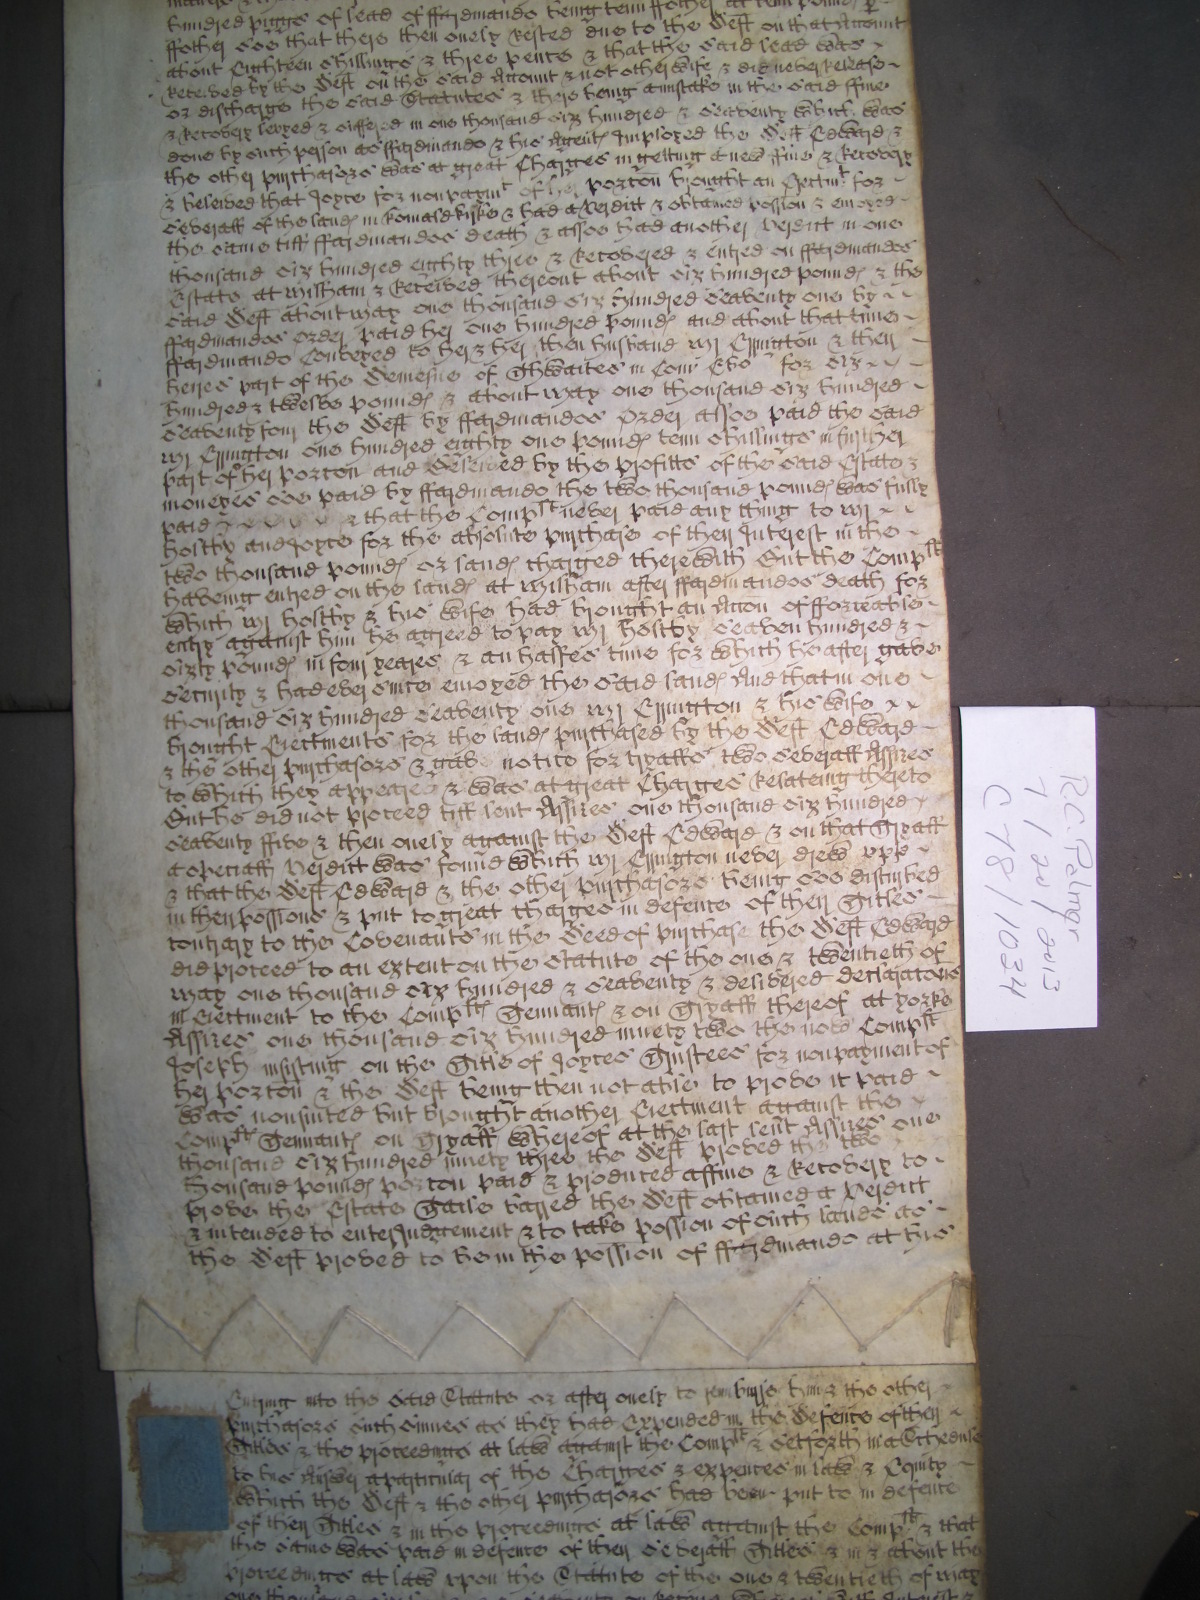 hundred piggs of lead of ffardinando being tenn ffother at tenn pounds
ffother soe that there then onely rested due to the Deft on that Account
about Eighteen shillings & three pence & that the said lead was
received by the Deft on the said Account & not otherwise & did never release
or discharge the said Statutes & there being a mistake in the said ffine
& Recovery levyed & suffered in one thousand six hundred & seaventy which was
done by such person as ffardinando & his Agents Imployed the Deft Edward &
the other purchasors was at great Charges in getting a new ffine & Recovery
& beleived that Joyce for nonpaymt of her porcon brought an Ejectmt for
severall of the lands in Romaldkirke & had a Verdict & obtained possion & enjoyed
the same till ffardinandos death & alsoe had another Verdict in one
thousand six hundred eighty three & Recovered & entred on ffardinandos
Estate at Mersham & Received thereout about six hundred pounds & the
said Deft about may one thousand six hundred seaventy one by
ffardinandos Order paid her one hundred pounds and about that time
ffardinando Conveyed to her & her then husband mr Errington & their
heires part of the Demesne of Thwaites in Com Ebor for six
hundred & twelve pounds & about may one thousand six hundred
seaventy four the Deft by ffardinandos Order alsoe paid the said
mr Errington one hundred eighty one pounds tenn shillings in further
part of her porcon and beleived by the profitts of the said Estate &
moneyes soe paid by ffardinando the two thousand pounds was fully
paid & that the Complt never paid any thing to mr
hostby and Joyce for the absolute purchase of their Interest in the
two thousand pounds or lands charged therewith But the Complt
haveing entred on the lands at after ffardinandos death for
which mr hostby & his wife had brought an Accon of fforceable
entry against him he agreed to pay mr hostby seaven hundred &
sixty pounds in four yeares & an halfes time for which he after gave
security & had ever since enjoyed the said lands And that in one
thousand six hundred seaventy one mr Errington & his wife
brought Ejectments for the lands purchased by the Deft Edward
& the other purchasors & gave notice for tryalls two severall Assizes
to which they appeared & was at great Charges Relateing thereto
But he did not proceed till lent Assizes one thousand six hundred
seaventy five & then onely against the Deft Edward & on that Tryall
a speciall Verdict was found which mr Errington never drew upp
& that the Deft Edward & the other purchasors being soe disturbed
in their possions & put to great charges in defence of their Titles
contrary to the Covenants in the Deed of purchase the Deft Edward
did proceed to an extent on the Statute of the one & twentieth of
may one thousand six hundred & seaventy & delivered declaracons
in Ejectment to the Complts Tennants & on Tryall thereof at yorke
Assizes one thousand six hundred ninety two the now Complt
Joseph insisting on the Title of Joyces Trustees for nonpayment of
her porcon & the Deft being then not able to prove it paid
was nonsuited but brought another Ejectment against the
Complts Tennants on Tryall whereof at the last lent Assizes one
thousand six hundred ninety three the Deft proved the two
thousand pounds porcon paid & produced a ffine & Recovery to
prove the Estate Taile barred the Deft obtained a Verdict
& intended to enter Judgement & to take possion of such lands as
the Deft proved to be in the possion of ffardinando at his
Entring into the said Statute or after onely to reimburse him & the other
purchasors such summes as they had Expended in the Defence of their
Titles & the proceedings at law against the Complt & setforth in a Schedule
to his Answer a particular of the Charges & expences in law & Equity
which the Deft & the other purchasors had been put to in defence
of their Titles & in the proceedings at law against the Complt & that
the same was paid in defence of their severall Titles & in & about the
proceedings at law upon the Statute of the one & twentieth of may
R.C. Palmer
7 1 2013
C 78/1034